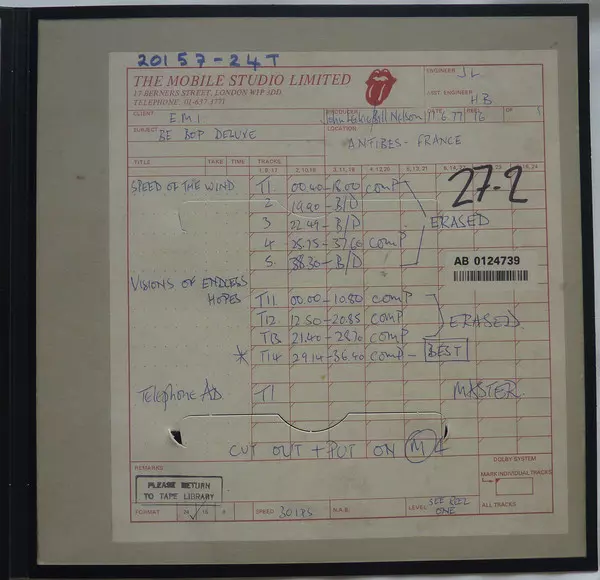 20157-24T
THE MOBILE STUDIO LIMITED
17 BERNERS STREET, LONDON W1P 3DD.
TELEPHONE: 01-637 1771
ENGINEER JL
ASST. ENGINEER HB
CLIENT EMI
PRODUCER John Leckie/Bill Nelson 17.6.77 REEL 16 OF
SUBJECT BE BOP DELUXE
LOCATION ANTIBES - FRANCE
TITLE TAKE TIME TRACKS
1, 9, 17 2, 10, 18 3, 11, 19 4, 12, 20 5, 13, 21
SPEED OF THE WIND T1 00.40 - 18.00 comP
27-2
2 19.90 - B/D
3 22.49 - B/D
ERASED
4 25.75 - 37.60 comP
5. 38.30 - B/D
AB 0124739
VISIONS OF ENDLESS HOPES
T11 00.00 - 10.80 comP
T12 12.50 - 20.85 comP
ERASED
T13 21.40 - 28.70 comP
* T14 29.14 - 36.40 comP - BEST
Telephone AD T1 MASTER
CUT OUT + PUT ON M4
REMARKS
DOLBY SYSTEM
MARK INDIVIDUAL TRACKS
PLEASE RETURN
TO TAPE LIBRARY
ALL TRACKS
FORMAT 24 16 8 SPEED 30 IPS N.A.B. LEVEL SEE REEL ONE